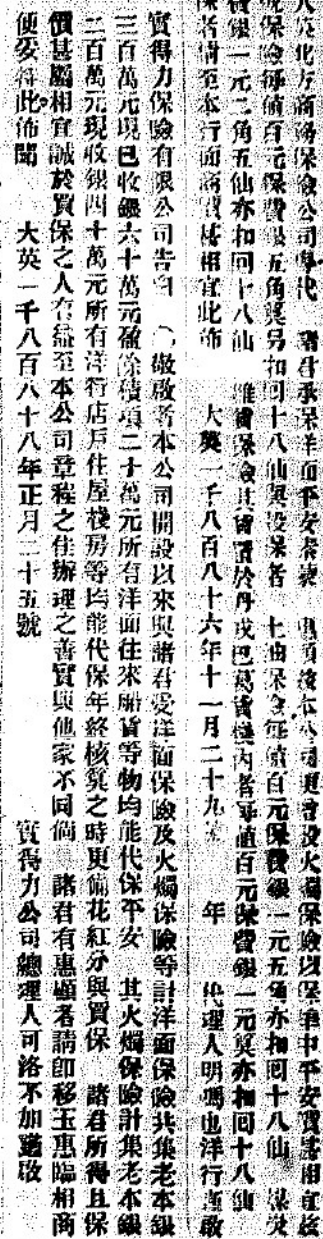 大英北方商務保險公司專代　諸君承保洋面平安茶
火險保險每值百元保費銀五角算另扣回十八仙與投保者　土油保險每值百元保費銀一元五角亦扣回十八仙
費銀一元二角五仙亦扣回十八仙　雜貨保險其貨置於丹戎巴葛貨棧內者每值百元保費銀一元算亦扣回十八仙
保者請至本行面商價格相宜此佈　大英一千八百八十六年十一月二十九　年　代理人明嗎也洋行謹啟
寶得力保險有限公司告白　敬啟者本公司開設以來與諸君受洋面保險及火燭保險等計洋面保險共集老本銀
三百萬元現已收銀六十萬元盈餘積項二十萬元所有洋面往來船貨等物均能代保平安　其火燭保險計集老本銀
二百萬元現收銀四十萬元所有洋行店戶住屋棧房等均能代保年終核算之時更備花紅分與買保　諸君所得且保
價甚屬相宜誠於買保之人有益至本公司章程之佳辦理之善實與他家不同倘　諸君有惠顧者請即移玉惠臨相商
便妥特此佈聞　大英一千八百八十八年正月二十五號　寶得力公司總理人可洛不加謹啟